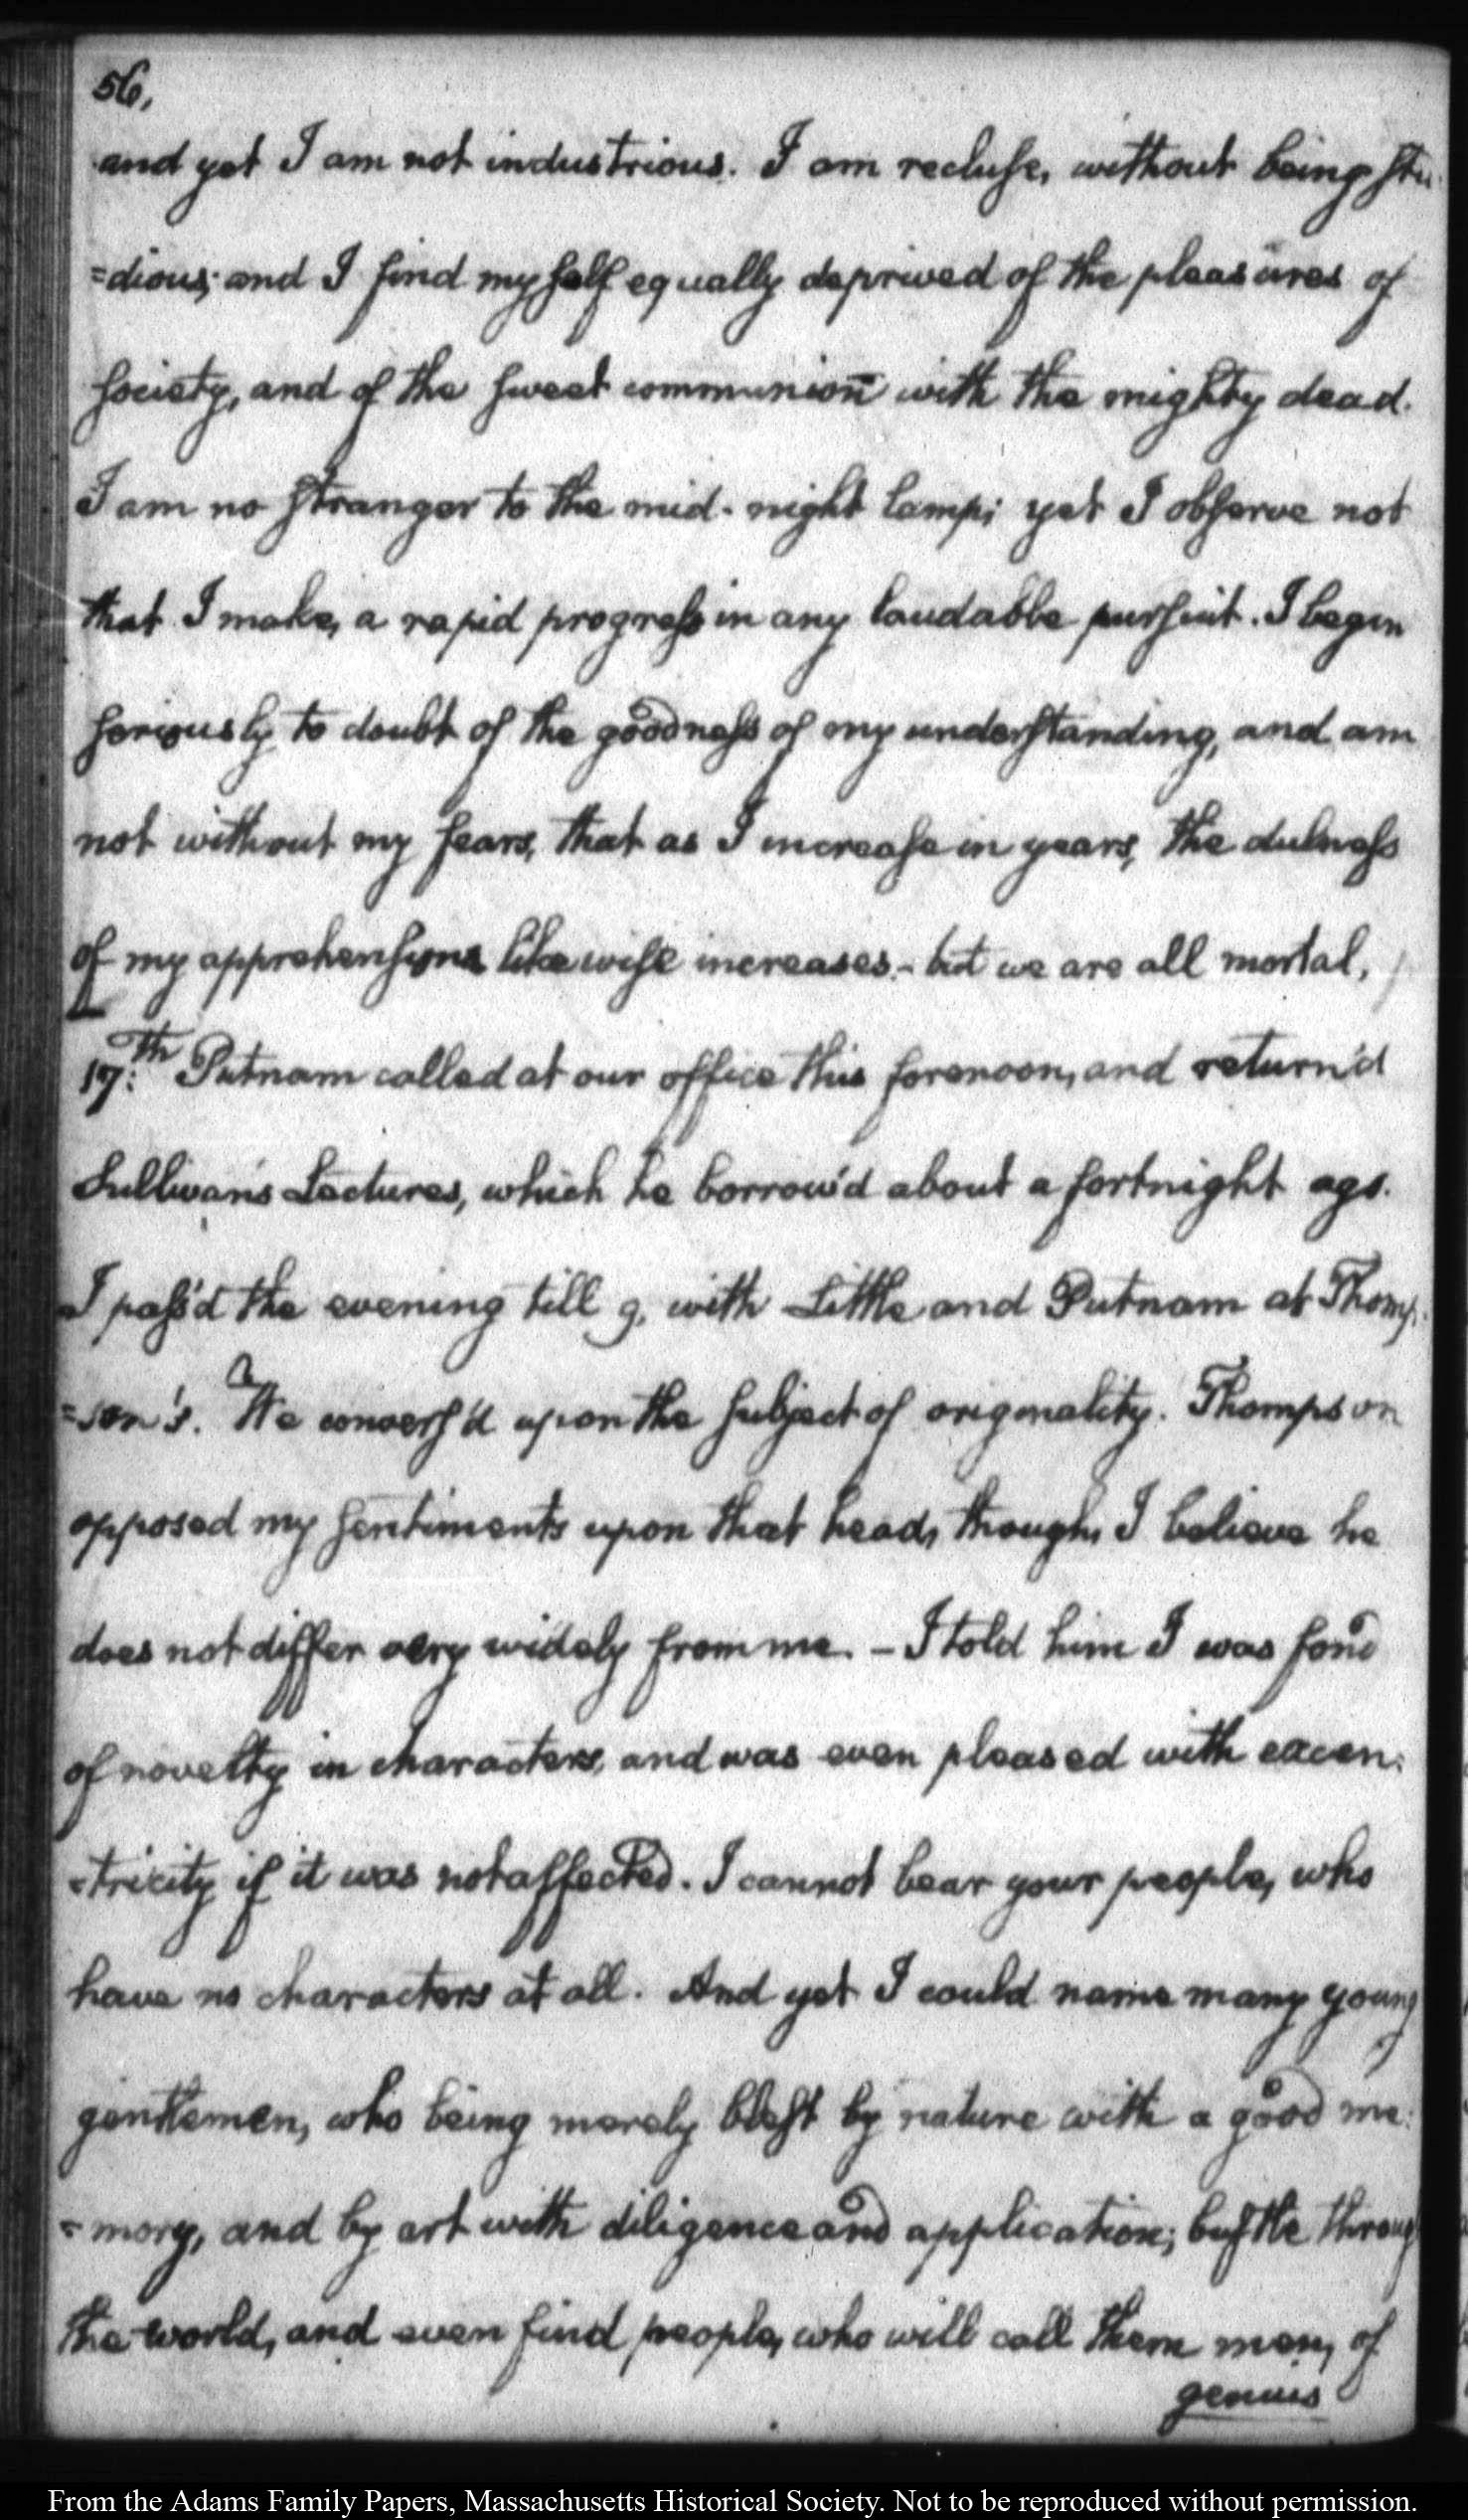 56.
and yet I am not industrious. I am recluse, without being stu
=dious; and I find myself equally deprived of the pleasures of
society, and of the sweet communion with the mighty dead.
I am no stranger to the mid-night lamp; yet I observe not
that I make, a rapid progress in any laudable pursuit. I begin
seriously to doubt of the goodness of my understanding, and am
not without my fears, that as I increase in years, the dulness
of my apprehensions likewise increases.- but we are all mortal.
17:th Putnam called at our office this forenoon, and return'd
Sullivan's Lectures, which he borrow'd about a fortnight ago.
I pass'd the evening till 9, with Little and Putnam at Thomp-
=son's. We convers'd upon the subject of originality. Thompson
opposed my sentiments upon that head, though, I believe he
does not differ very widely from me. - I told him I was fond
of novelty in characters, and was even pleased with eccen:
=tricity if it was not affected. I cannot bear your people, who
have no characters at all. And yet I could name many young
gentlemen, who being merely blest by nature with a good me:
=mory, and by art with diligence and application; bustle through
the world, and even find people, who will call them men, of
genius
From the Adams Family Papers, Massachusetts Historical Society. Not to be reproduced without permission.